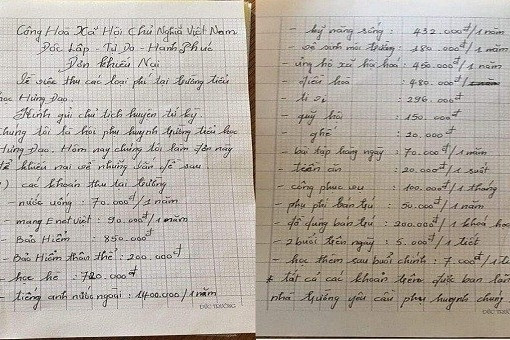 Cộng Hoà Xã Hội Chủ Nghĩa Việt Nam
Độc Lập - Tự Do - Hạnh Phúc
Đơn khiếu Nại
Về việc thu các loại phí tại trường tiểu
học Hưng Đạo.
Kính gửi chủ tịch huyện tứ kỳ.
chúng tôi là hội phụ huynh trường tiểu học
Hưng Đạo. Hôm nay chúng tôi làm đơn này
để khiếu nại về những vấn đề sau
các khoản thu tại trường
- nước uống : 70.000đ/1 năm
- mạng Enet Việt : 90.000đ/1 năm
- Bảo Hiểm : 850.000đ
- Bảo Hiểm thân thể : 200.000đ
- học hè : 720.000đ
- tiếng anh nước ngoài : 1400.000/1 năm
ĐỨC TRƯỜNG
- kỹ năng sống : 432.000đ/1 năm
- vệ sinh môi trường : 180.000đ/1 năm
- ủng hộ xã hội hoá : 450.000đ/1 năm
- điều hoà : 480.000đ
- ti vi : 296.000đ
- quỹ hội : 150.000đ
- ghế : 20.000đ
- bài tập hàng ngày : 70.000đ/1 năm
- tiền ăn : 20.000đ/1 suất
- công phục vụ : 100.000đ/1 tháng
- phụ phí bán trú : 50.000đ/1 năm
- đồ dùng bán trú : 200.000đ/1 khoá học
- 2 buổi trên ngày : 5.000đ/1 tiết
- học thêm sau buổi chính : 7.000đ/1 tiết
* tất cả các khoản trên được ban lãnh
nhà trường yêu cầu phụ huynh chúng
ĐỨC TRƯỜNG